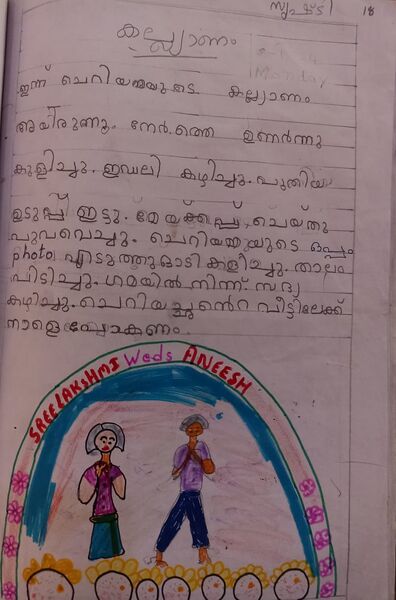 സൃഷ്ടി 18
കല്യാണം
Monday
ഇന്ന് ചെറിയമ്മയുടെ കല്ല്യാണം
അയിരുന്നൂ. നേർത്തെ ഉണർന്നു
കുളിച്ചു. ഇഡലി കഴിച്ചു. പുതിയ
ഉടുപ്പ് ഇട്ടു. മേയ്ക്കപ്പ് ചെയ്തു
പൂവെച്ചു. ചെറിയമ്മയുടെ ഒപ്പം
photo എടുത്തു ഓടി കളിച്ചു. താലം
പിടിച്ചു. ഗമയിൽ നിന്ന് സദ്യ
കഴിച്ചു. ചെറിയച്ഛൻെറ വീട്ടിലേക്ക്
നാളെ പോകണം.
SREELAKSHMI Weds ANEESH